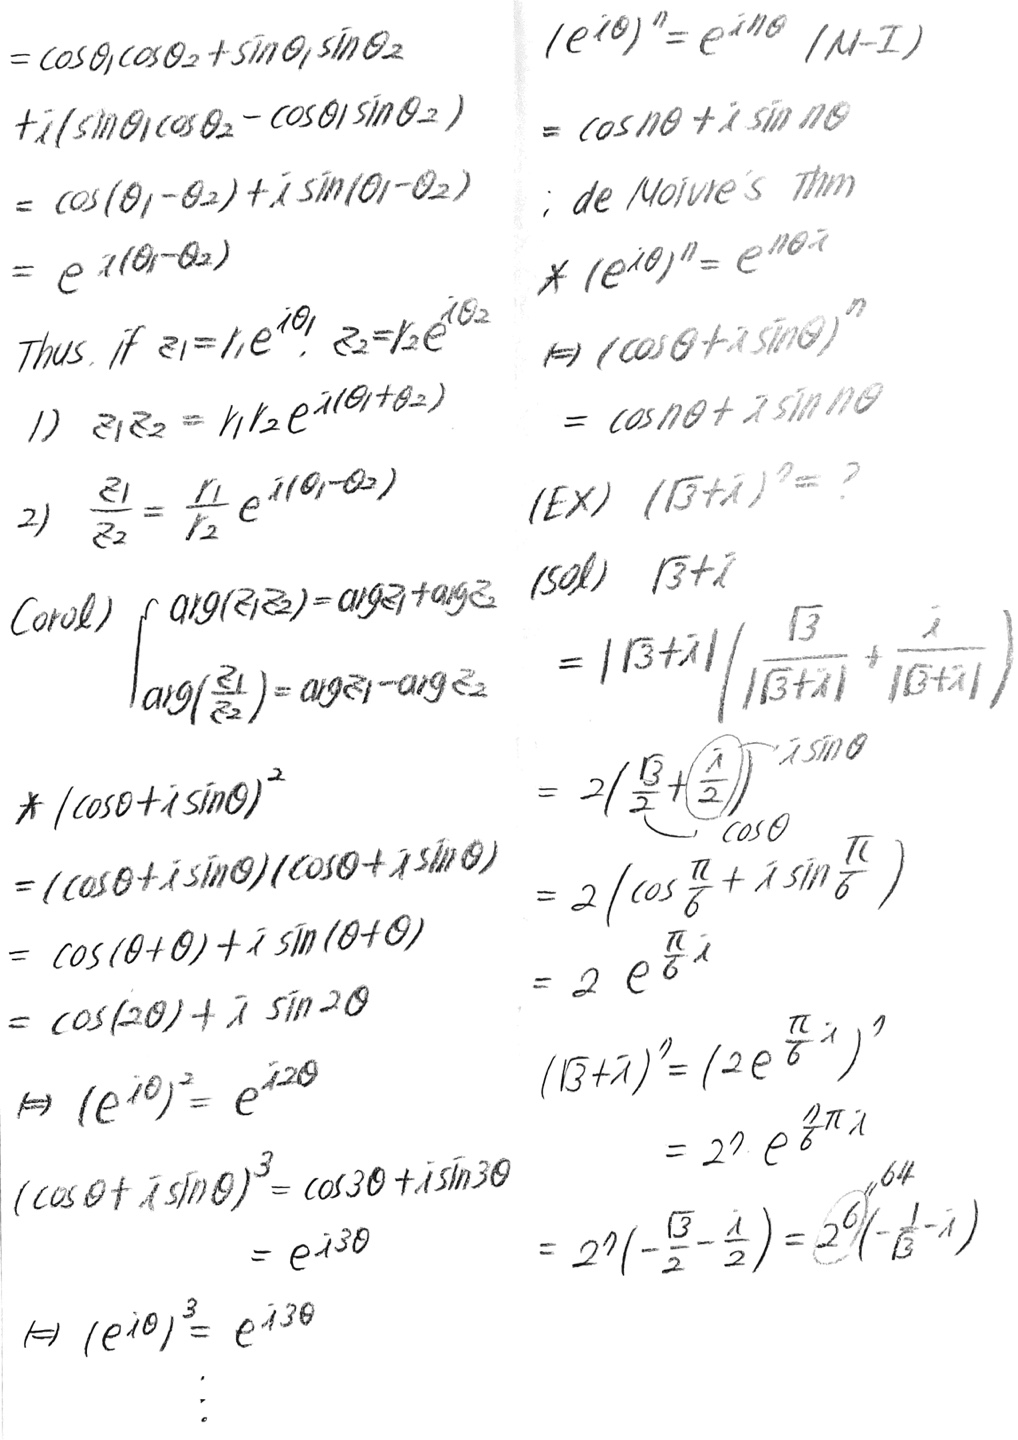 = cosθ₁cosθ₂+sinθ₁sinθ₂
+i(sinθ₁cosθ₂-cosθ₁sinθ₂)
= cos(θ₁-θ₂)+i sin(θ₁-θ₂)
= e^{i(θ₁-θ₂)}
Thus, if z₁=r₁e^{iθ₁}, z₂=r₂e^{iθ₂}
1) z₁z₂ = r₁r₂e^{i(θ₁+θ₂)}
2) z₁/z₂ = r₁/r₂ e^{i(θ₁-θ₂)}
Corol) { arg(z₁z₂)=argz₁+argz₂
arg(z₁/z₂)=argz₁-argz₂
* (cosθ+i sinθ)²
=(cosθ+i sinθ)(cosθ+i sinθ)
= cos(θ+θ)+i sin(θ+θ)
= cos(2θ)+i sin2θ
⇔ (e^{iθ})² = e^{i2θ}
(cosθ+i sinθ)³=cos3θ+isin3θ
= e^{i3θ}
⇔ (e^{iθ})³ = e^{i3θ}
⋮
(e^{iθ})ⁿ=e^{inθ} (M-I)
= cosnθ+i sin nθ
; de Moivre's Thm
* (e^{iθ})ⁿ=e^{nθi}
⇔ (cosθ+i sinθ)ⁿ
= cosnθ+i sin nθ
(EX) (√3+i)⁷=?
(Sol) √3+i
= |√3+i|(√3/|√3+i| + i/|√3+i|)
= 2(√3/2+i/2) i sinθ
cosθ
= 2(cos π/6 + i sin π/6)
= 2 e^{π/6 i}
(√3+i)⁷=(2e^{π/6 i})⁷
= 2⁷ e^{7/6 πi}
= 2⁷(-√3/2-i/2)=2⁶(-1/√3-i) "64